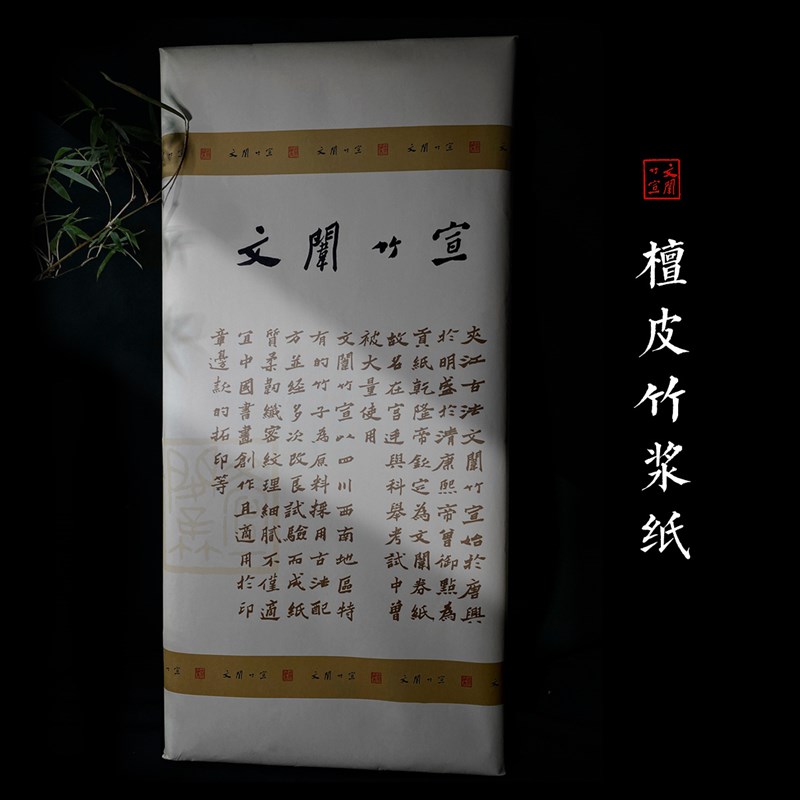 竹宣 文闈竹宣 文闈竹宣 文闈竹宣 文
文闈竹宣
夾江古法文闈竹宣始於唐興
於明盛於清康熙帝曾御點為
貢紙乾隆帝欽定為文闈卷紙
故名在宮廷與科舉考試中曾
被大量使用
文闈竹宣以四川西南地區特
有的竹子為原料採用古法配
方並經多次改良試驗而成紙
質柔韌纖容紋理細膩不僅適
宜中國書畫創作且適用於印
章邊款的拓印等
竹宣 文闈竹宣 文闈竹宣 文闈竹宣 文
文闈竹宣
檀皮竹浆纸